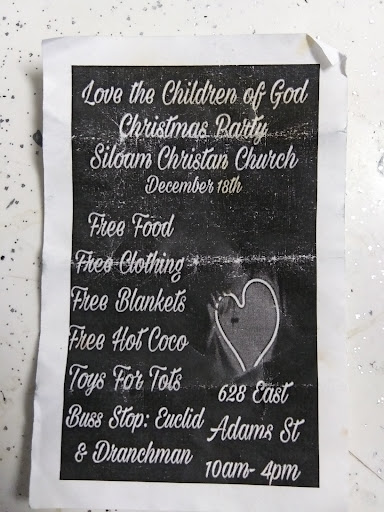 Love the Children of God
Christmas Party
Siloam Christan Church
December 18th
Free Food
Free Clothing
Free Blankets
Free Hot Coco
Toys For Tots
Buss Stop: Euclid
& Dranchman
628 East
Adams St
10am- 4pm